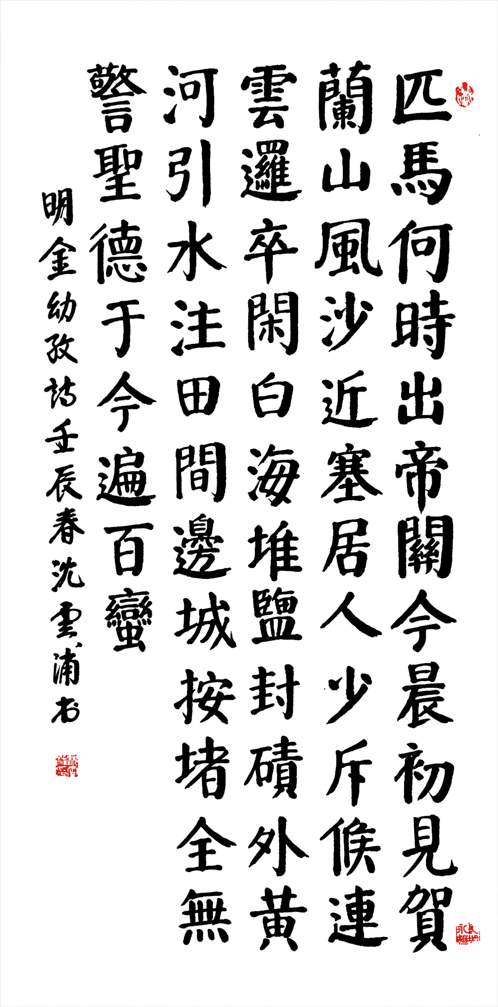 匹馬何時出帝關今晨初見賀
蘭山風沙近塞居人少斥候連
雲邏卒閑白海堆鹽封磧外黃
河引水注田間邊城按堵全無
警聖德于今遍百蠻
明金幼孜詩壬辰春沈雲浦書